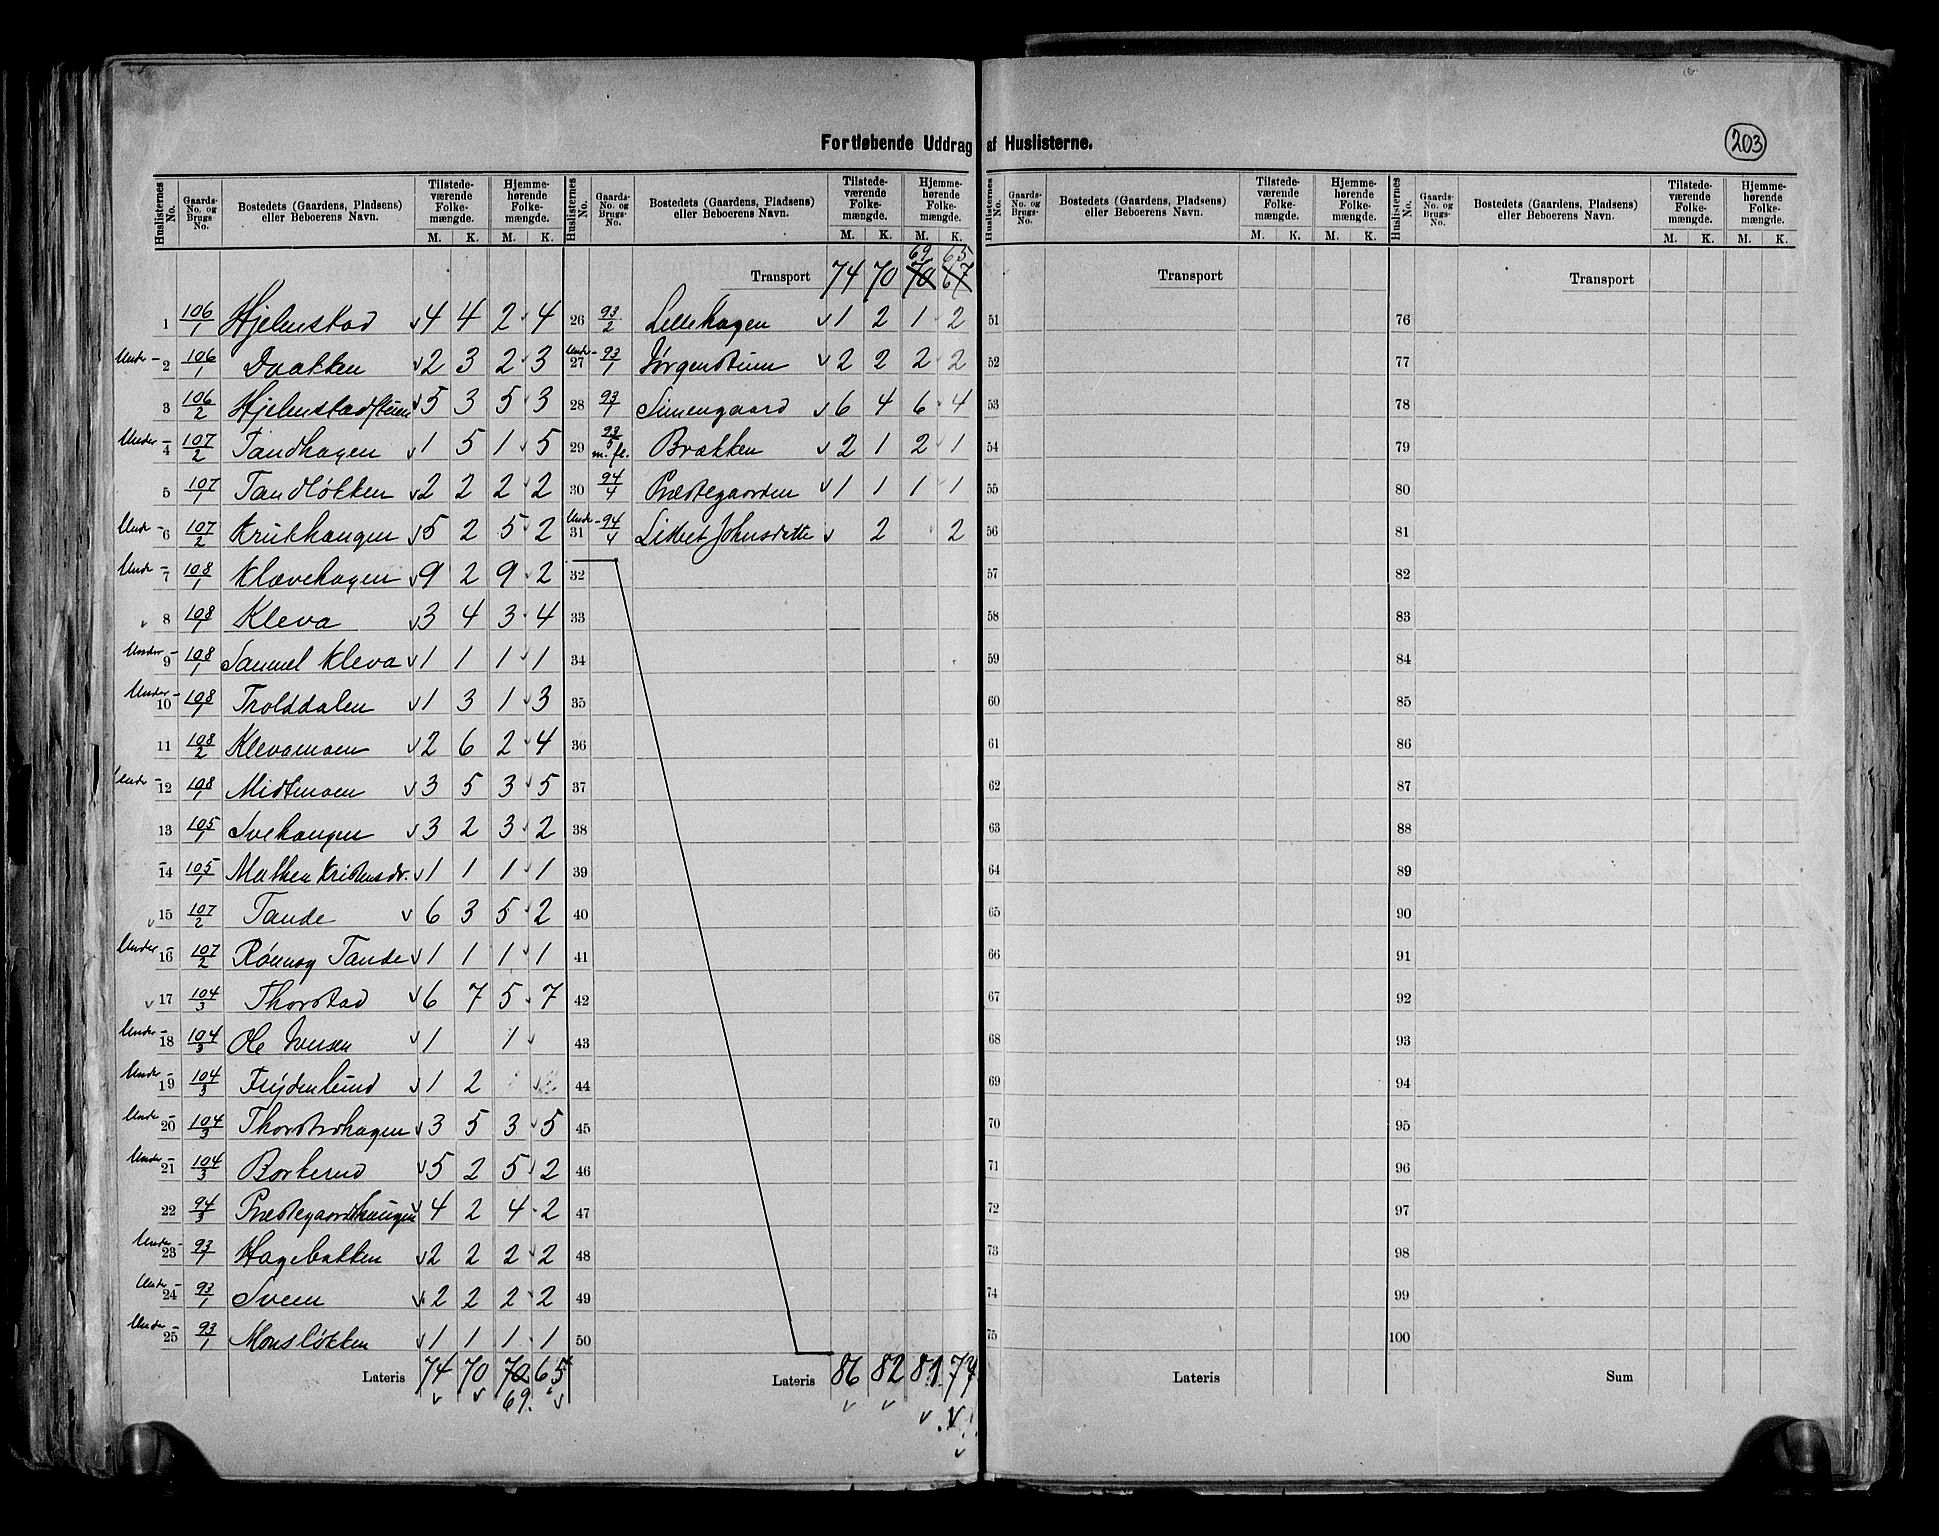 203
Fortløbende Uddrag af Huslisterne.
Huslisternes No. Gaards-No. og Brugs-No. Bostedets (Gaardens, Pladsens) eller Beboerens Navn. Tilstedeværende Folkemængde. M. K. Hjemmehørende Folkemængde. M. K.
1 106/1 Hjelmstad 4 4 2 4
Under - 2 106/1 Daakken 2 3 2 3
3 106/2 Hjelmstadstuen 5 3 5 3
Under - 4 107/2 Tandhagen 1 5 1 5
5 107/1 Tandløkken 2 2 2 2
Under - 6 107/2 Krukhaugen 5 2 5 2
Under - 7 108/1 Klævehagen 9 2 9 2
8 108/1 Kleva 3 4 3 4
Under - 9 108/1 Samuel Kleva 1 1 1 1
Under - 10 108/1 Trolddalen 1 3 1 3
11 108/2 Klevamoen 2 6 2 4
Under - 12 108/1 Midtemoen 3 5 3 5
13 105/1 Svehaugen 3 2 3 2
- 14 105/1 Mathea Kristensdr. 1 1 1 1
15 107/2 Tande 6 3 5 2
Under - 16 107/2 Rønnog Tande 1 1 1 1
17 104/3 Thorstad 6 7 5 7
Under - 18 104/3 Ole Iversen 1 1
Under - 19 104/3 Frydenlund 1 2
Under - 20 104/3 Thorstadhagen 3 5 3 5
Under - 21 104/3 Borkerud 5 2 5 2
22 94/3 Præstegaardshaugen 4 2 4 2
Under - 23 93/1 Hagebakken 2 2 2 2
Under - 24 93/1 Sveen 2 2 2 2
Under - 25 93/1 Monsløkken 1 1 1 1
Lateris 74 70 70 65
69.
Huslisternes No. Gaards-No. og Brugs-No. Bostedets (Gaardens, Pladsens) eller Beboerens Navn. Tilstedeværende Folkemængde. M. K. Hjemmehørende Folkemængde. M. K.
69 65
Transport 74 70 70 67
26 93/2 Lillehagen 1 2 1 2
Under - 27 93/1 Jørgenstuen 2 2 2 2
28 93/1 Simengaard 6 4 6 4
29 93/5 m. fl. Brækken 2 1 2 1
30 94/4 Præstegaarden 1 1 1 1
Under - 31 94/4 Lisbet Johnsdatte 2 2
32
33
34
35
36
37
38
39
40
41
42
43
44
45
46
47
48
49
50
Lateris 86 82 81 77
Huslisternes No. Gaards-No. og Brugs-No. Bostedets (Gaardens, Pladsens) eller Beboerens Navn. Tilstedeværende Folkemængde. M. K. Hjemmehørende Folkemængde. M. K.
Transport
51
52
53
54
55
56
57
58
59
60
61
62
63
64
65
66
67
68
69
70
71
72
73
74
75
Lateris
Huslisternes No. Gaards-No. og Brugs-No. Bostedets (Gaardens, Pladsens) eller Beboerens Navn. Tilstedeværende Folkemængde. M. K. Hjemmehørende Folkemængde. M. K.
Transport
76
77
78
79
80
81
82
83
84
85
86
87
88
89
90
91
92
93
94
95
96
97
98
99
100
Sum